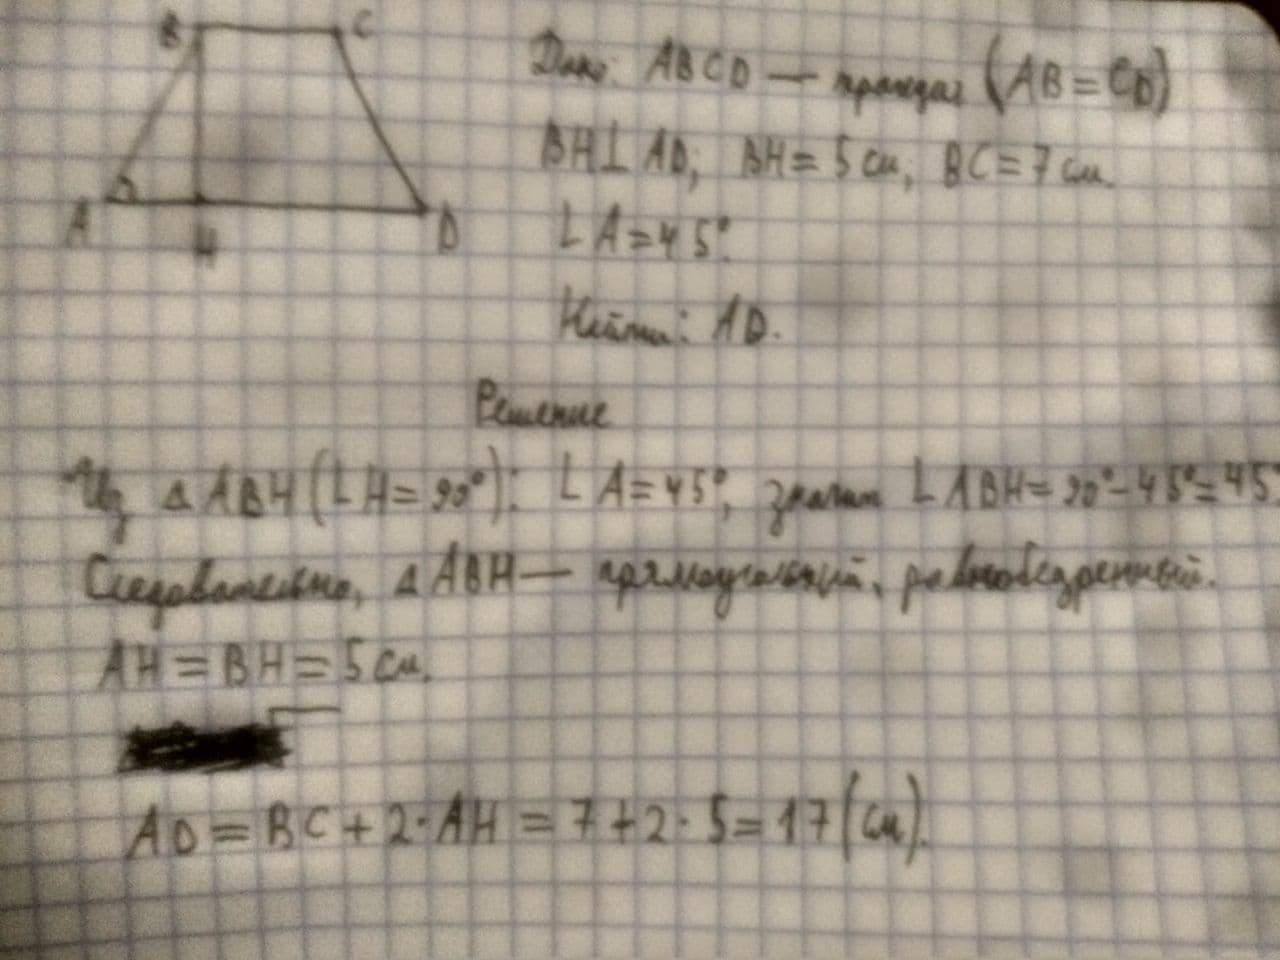 B C
A H D
Дано: ABCD — трапеция (AB = CD)
BH⊥AD; BH = 5 см; BC = 7 см.
∠A = 45°.
Найти: AD.
Решение
Из △ABH (∠H = 90°): ∠A = 45°, значит ∠ABH = 90° - 45° = 45°
Следовательно, △ABH — прямоугольный, равнобедренный.
AH = BH = 5 см.
AD = BC + 2·AH = 7 + 2·5 = 17 (см).